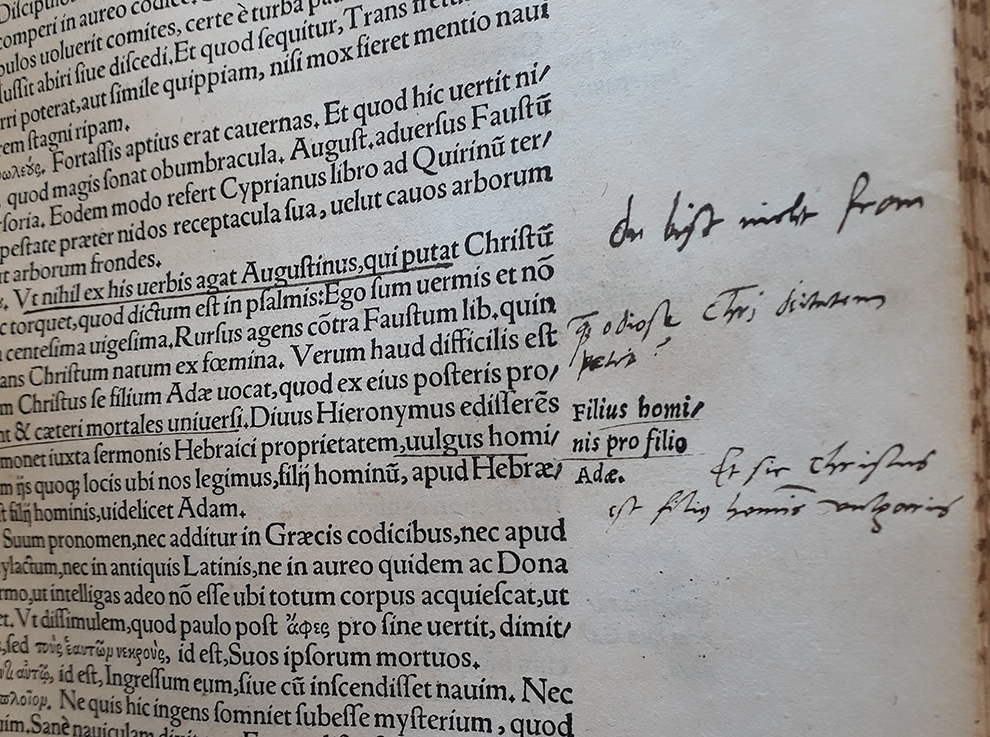 Discipulo
comperi in aureo codice.
pulos uoluerit comites, certe è turba
iussit abiri siue discedi. Et quod sequitur, Trans
rri poterat, aut simile quippiam, nisi mox fieret mentio naui
rem stagni ripam.
φωλεούς. Fortassis aptius erat cauernas. Et quod hic uertit ni/
quod magis sonat obumbracula. August. aduersus Faustū
rsoria. Eodem modo refert Cyprianus libro ad Quirinū ter/
pestate præter nidos receptacula sua, uelut cauos arborum
ut arborum frondes.
Vt nihil ex his uerbis agat Augustinus, qui putat Christū
c torquet, quod dictum est in psalmis: Ego sum uermis et nō
centesima uigesima. Rursus agens cōtra Faustum lib. quin
ans Christum natum ex fœmina. Verum haud difficilis est
m Christus se filium Adæ uocat, quod ex eius posteris pro/
nt & cæteri mortales uniuersi. Diuus Hieronymus edisserēs
monet iuxta sermonis Hebraici proprietatem, uulgus homi/
m ijs quoq; locis ubi nos legimus, filij hominū, apud Hebræ/
st filij hominis, uidelicet Adam.
Suum pronomen, nec additur in Græcis codicibus, nec apud
ylactum, nec in antiquis Latinis, ne in aureo quidem ac Dona
rmo, ut intelligas adeo nō esse ubi totum corpus acquiescat, ut
et. Vt dissimulem, quod paulo post ἄφες pro sine uertit, dimit/
sed τοὺς ἑαυτῶμ νεκροὺς, id est, Suos ipsorum mortuos.
αὐτῷ, id est, Ingressum eum, siue cū inscendisset nauim. Nec
πλοῖομ. Ne quis hic ingens somniet subesse mysterium, quod
uim. Sanè nauiculam
du bist nicht from
odiose Chri dictatem
petris?
Filius homi/
nis pro filio
Adæ.
Et sic Christus
est filius hominis vulgaris